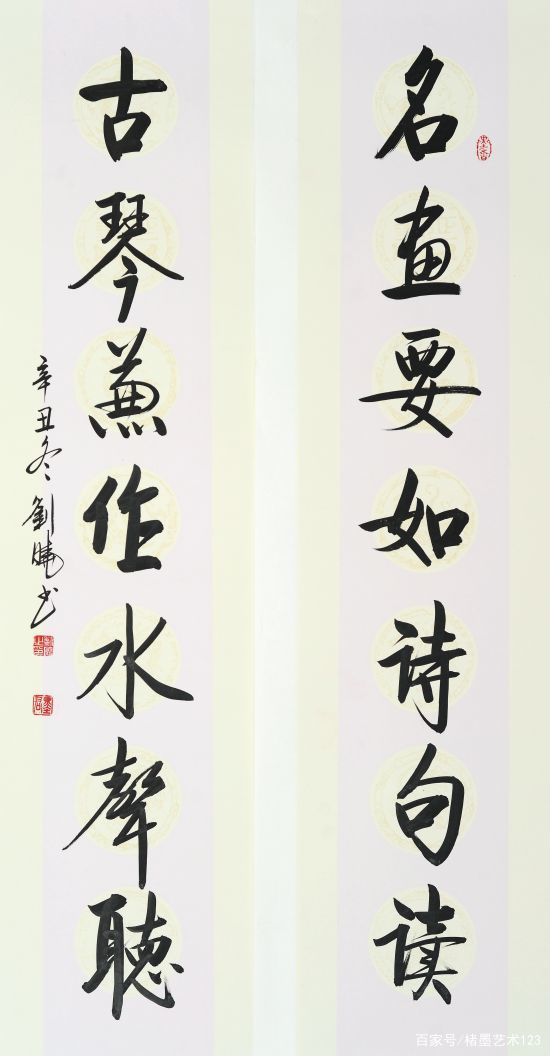 名画要如诗句读
古琴兼作水聲聽
辛丑冬劉曉书
百家号/楮墨艺术123